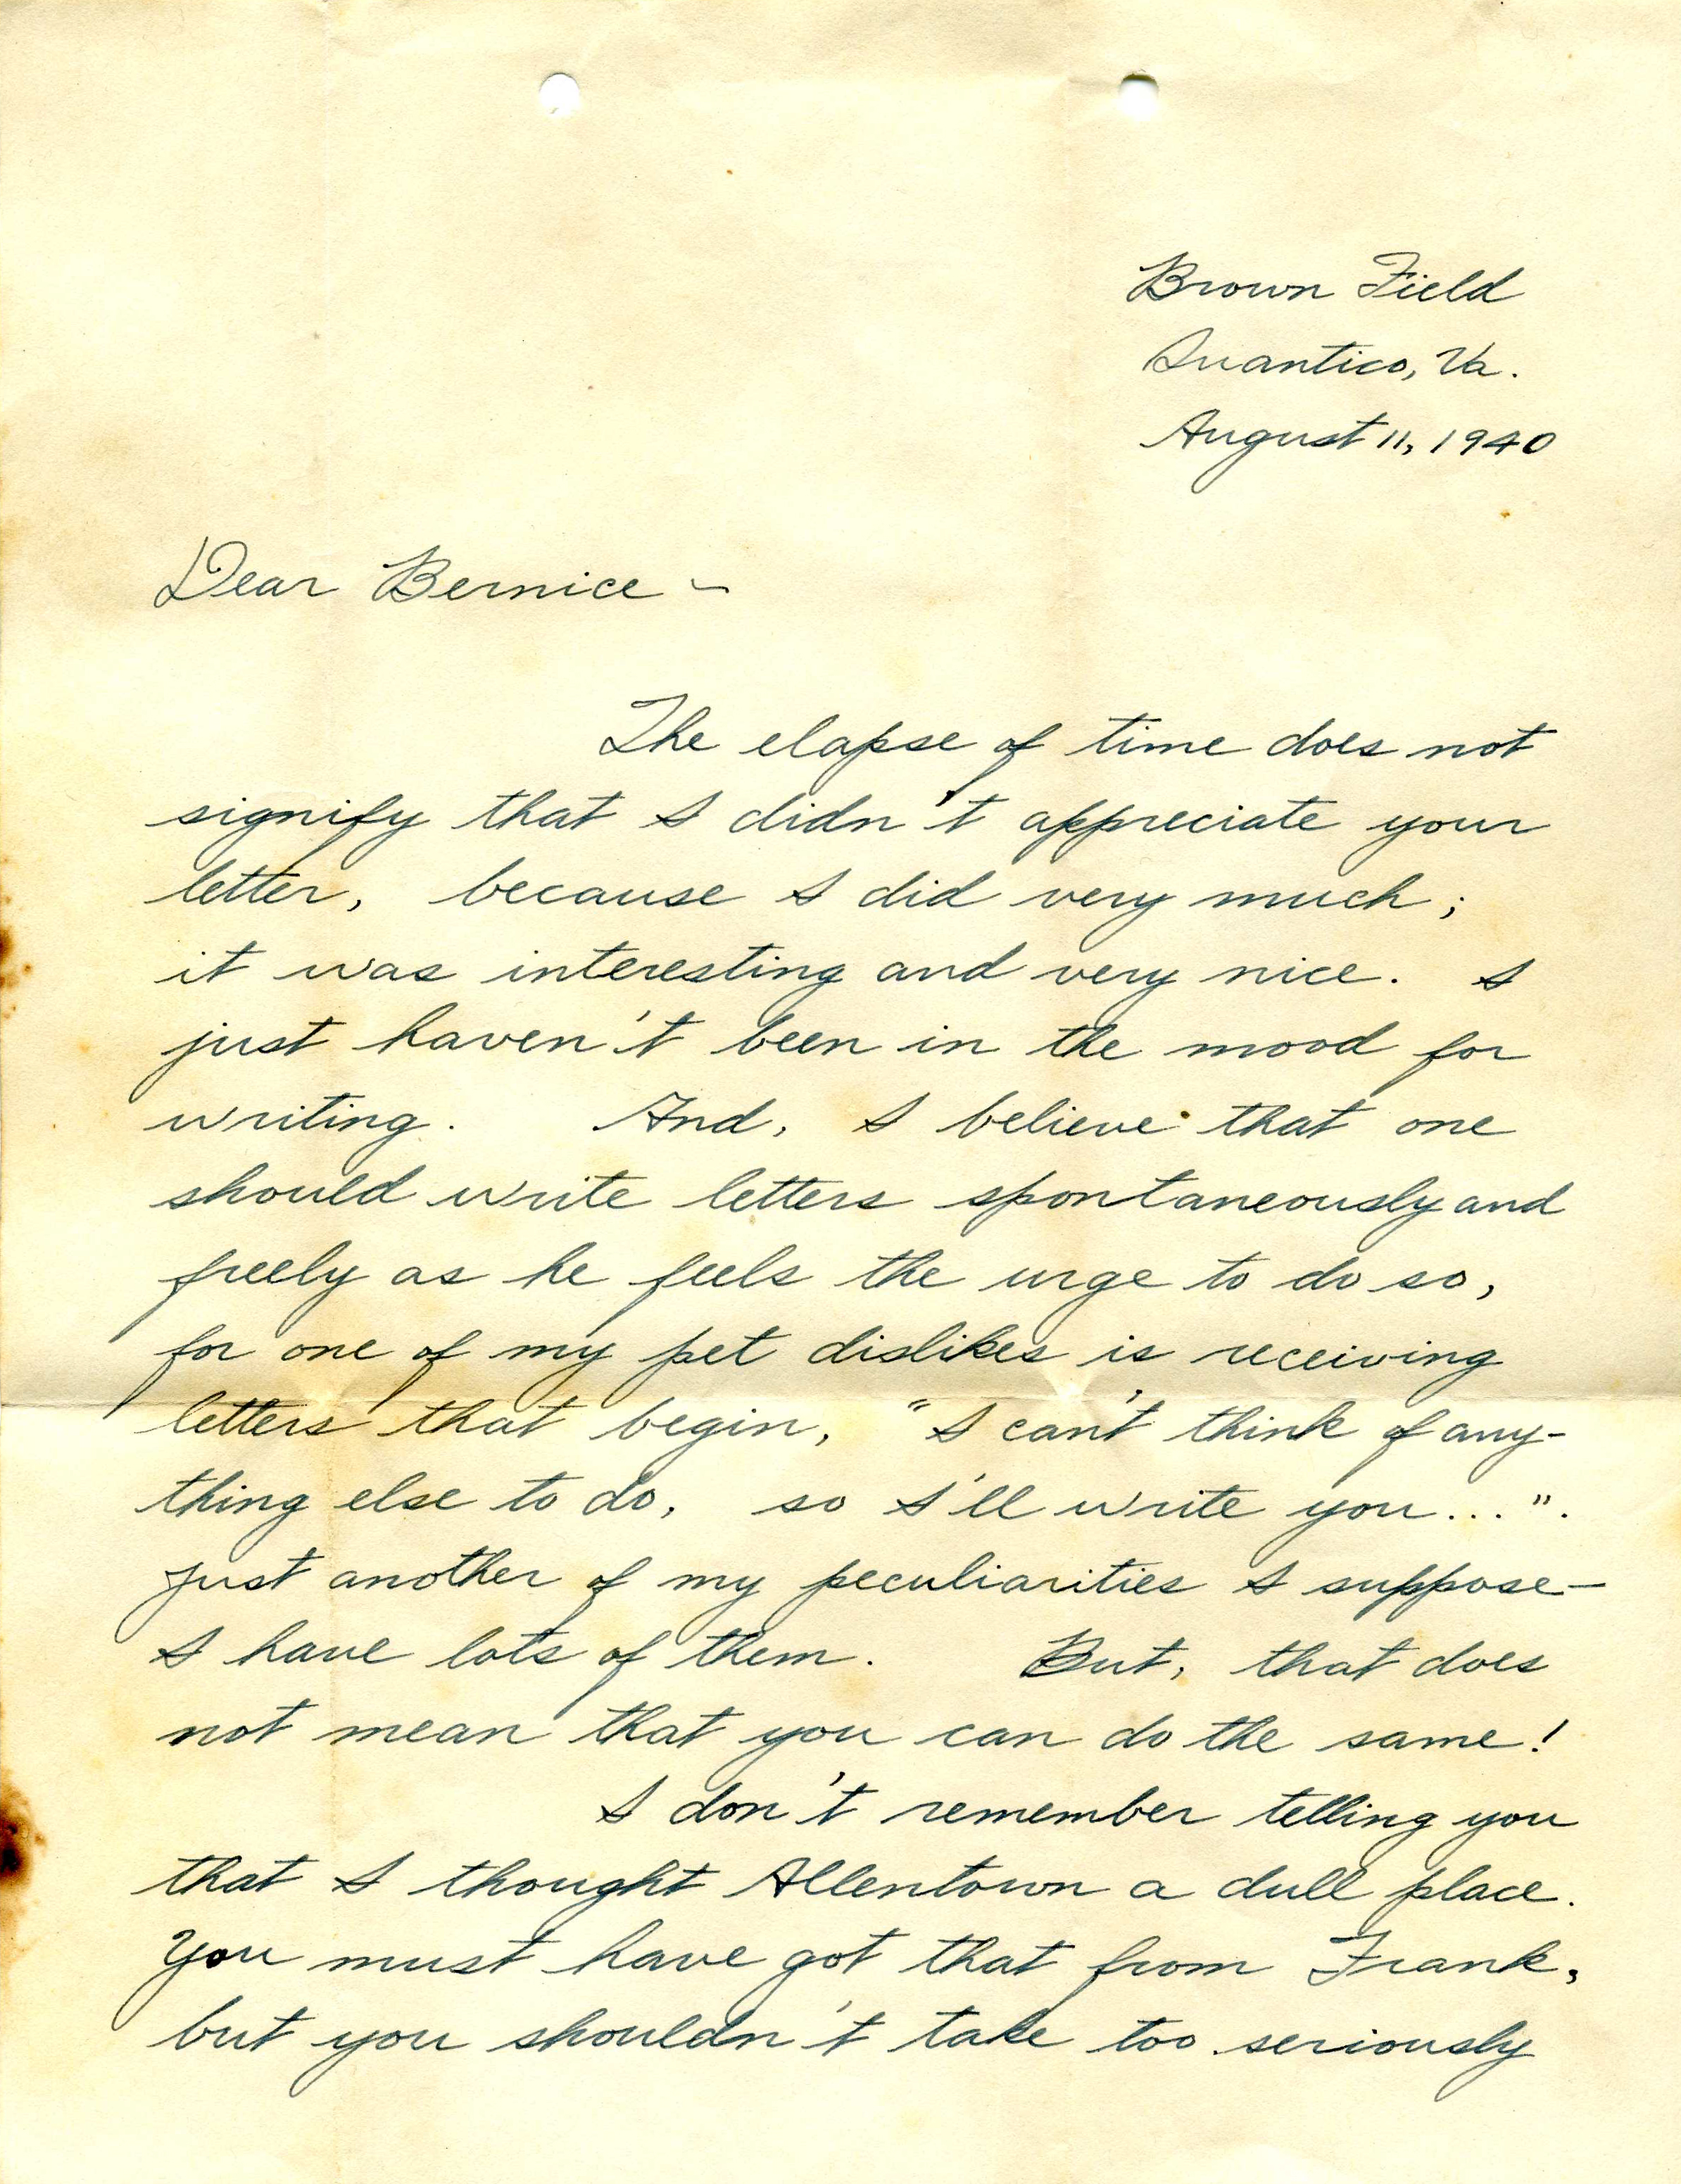 Brown Field
Quantico, Va.
August 11, 1940
Dear Bernice -
The elapse of time does not
signify that I didn't appreciate your
letter, because I did very much;
it was interesting and very nice. I
just haven't been in the mood for
writing. And, I believe that one
should write letters spontaneously and
freely as he feels the urge to do so,
for one of my pet dislikes is receiving
letters that begin, "I can't think of any-
thing else to do, so I'll write you...".
Just another of my peculiarities I suppose-
I have lots of them. But, that does
not mean that you can do the same!
I don't remember telling you
that I thought Allentown a dull place.
You must have got that from Frank,
but you shouldn't take too seriously